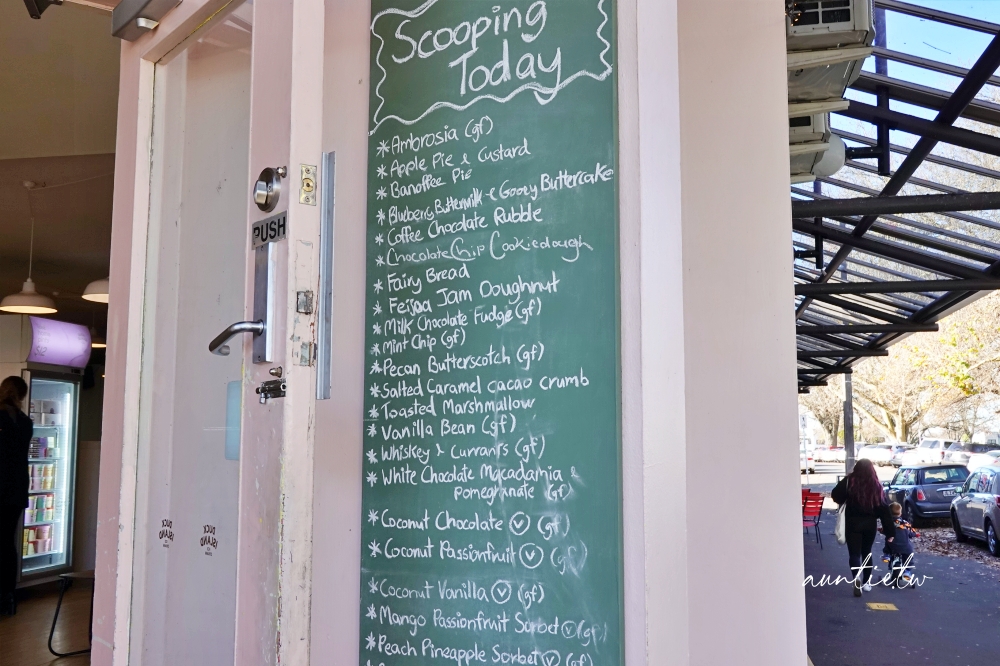 Scooping
Today
*Ambrosia (gf)
*Apple Pie & Custard
*Banoffee Pie
*Blueberry, Buttermilk & Gooey Buttercake
*Coffee Chocolate Rubble
*Chocolate Chip Cookiedough
*Fairy Bread
*Feijoa Jam Doughnut
*Milk Chocolate Fudge (gf)
*Mint Chip (gf)
*Pecan Butterscotch (gf)
*Salted Caramel cacao crumb
*Toasted Marshmallow
*Vanilla Bean (gf)
*Whiskey & Currants (gf)
*White Chocolate Macadamia &
pomegranate (gf)
*Coconut Chocolate Ⓥ (gf)
*Coconut Passionfruit Ⓥ (gf)
*Coconut Vanilla Ⓥ (gf)
*Mango Passionfruit Sorbet Ⓥ (gf)
*Peach Pineapple Sorbet Ⓥ (gf)
PUSH
DUCK
ISLAND
DUCK
ISLAND
auntie.tw